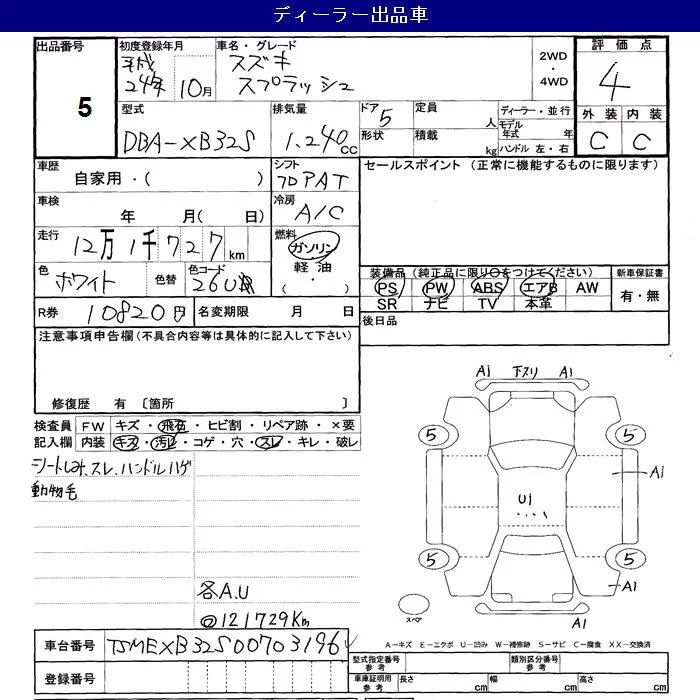 ディーラー出品車
出品番号 初度登録年月 車名・グレード 評価点
平成 スズキ 2WD
24年 10月 スプラッシュ ・ 4
5 4WD
外装 内装
型式 排気量 ドア 定員 ディーラー・並行
5 人 モデル年式 年 C C
DBA-XB32S 1.240cc 形状 積載 kg ハンドル 左・右
車歴 シフト セールスポイント (正常に機能するものに限ります)
自家用・( ) フロアAT
車検 冷房
年 月( 日) A/C
走行 燃料
12万1千727km ガソリン
軽油
色 色替 色コード ( ・ )
ホワイト 26U
装備品(純正品に限り○をつけてください) 新車保証書
PS PW ABS エアB AW 有・無
SR ナビ TV 本革
R券 10820円 名変期限 月 日 後日品
注意事項申告欄(不具合内容等は具体的に記入して下さい)
修復歴 有 〔箇所 〕
検査員 FW キズ・飛石・ヒビ割・リペア跡・×要
記入欄 内装 キズ・汚レ・コゲ・穴・スレ・キレ・破レ
シートしみ、スレ、ハンドルハゲ
動物毛
A1 下スリ A1
5 5
A1
U1
5 5
A1
各A.U
121729Km
スペア
A1
A-キズ E-エクボ U-凹み W-補修跡 S-サビ C-腐食 XX-交換済
車台番号 TSMEXB32S00703196
登録番号
型式指定番号 参考 類別区分番号 参考
車庫証明用 参考 長さ cm 幅 cm 高さ cm